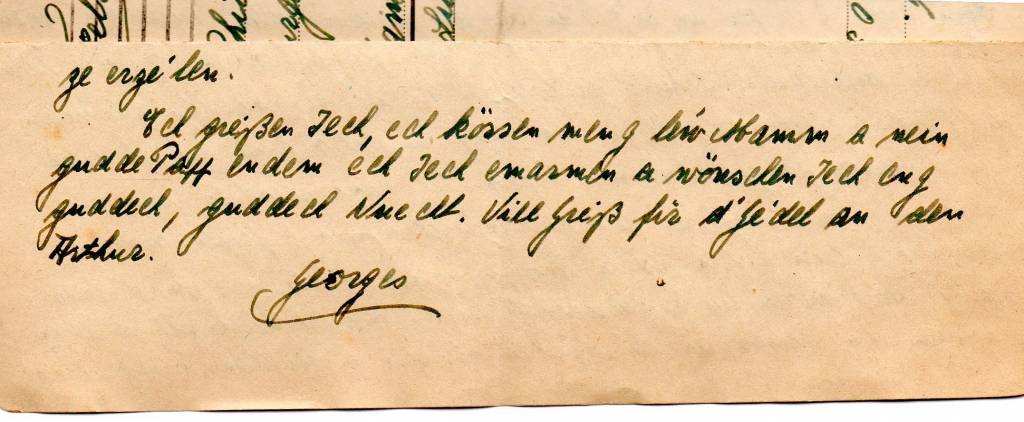 ze erzélen.
Ech greißen Iech, ech kössen meng léiw Mamm a mein
gudde Papp endem éch Iech emarmen a wönschen Iech eng
guddech, guddech Nuecht. Vill Greiß fir d'Gédel an den
Arthur.
Georges